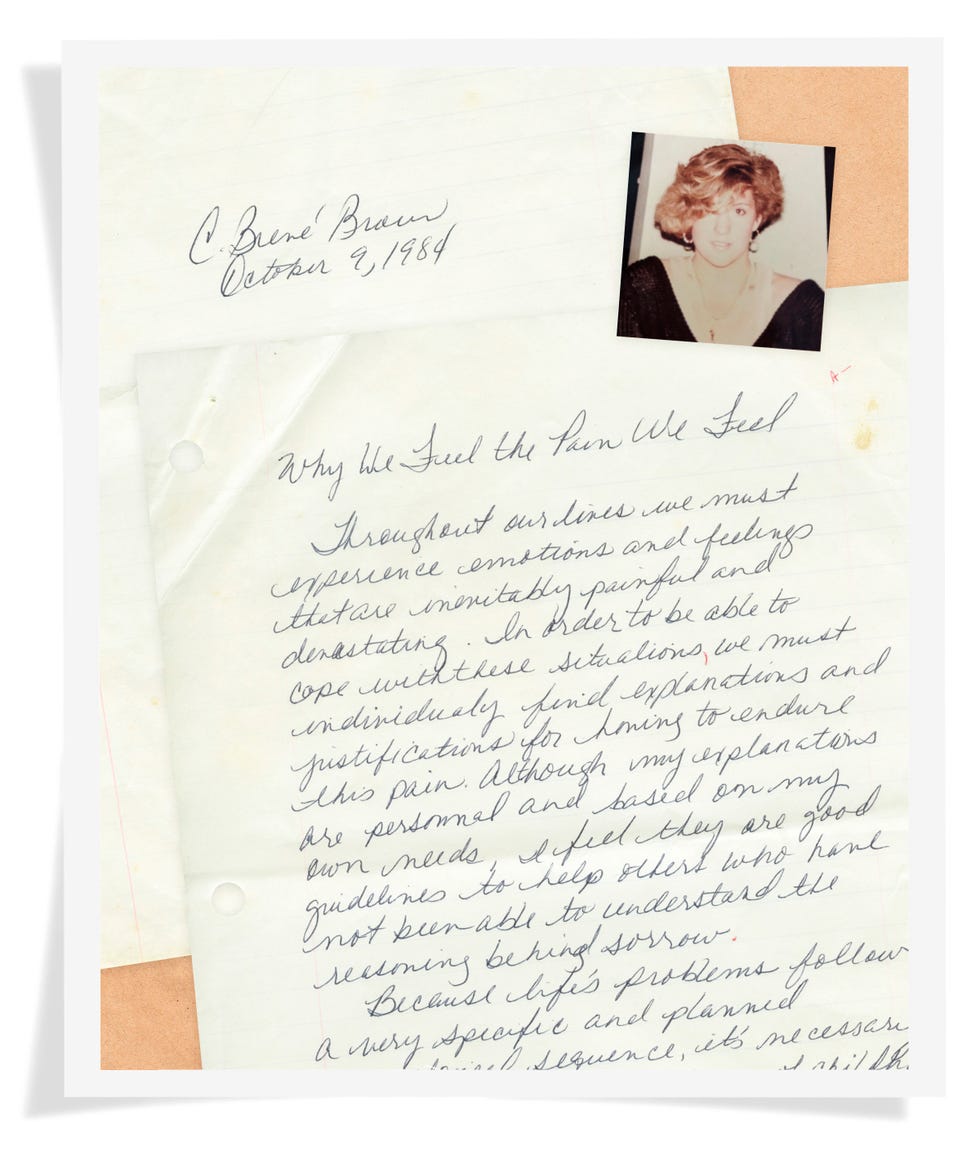 C. Brené Brown
October 9, 1984
A-
Why We Feel the Pain We Feel
Throughout our lives we must
experience emotions and feelings
that are inevitably painful and
devastating. In order to be able to
cope with these situations, we must
individualy find explanations and
justifications for having to endure
this pain. Although my explanations
are personnal and based on my
own needs, I feel they are good
guidelines to help others who have
not been able to understand the
reasoning behind sorrow.
Because life's problems follow
a very specific and planned
sequence, it's necessary
of